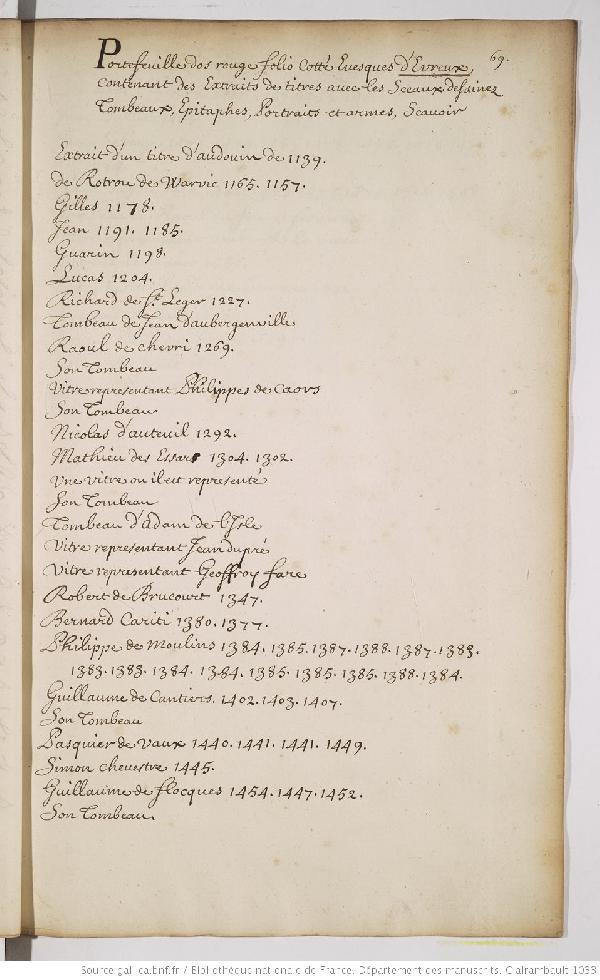 69.
Portefeuille dos rouge folio Cotté Evesques d'Evreux,
contenant des Extraits de titres avec les Sceaux dessinez
Tombeaux, Epitaphes, Portraits et armes, Scavoir
Extrait d'un titre d'audouin de 1139.
de Rotrou de Warvic 1165. 1157.
Gilles 1178.
Jean 1191. 1185.
Guarin 1198.
Lucas 1204.
Richard de St. Leger 1227.
Tombeau de Jean d'aubergenville
Raoul de chevri 1269.
Son Tombeau
Vitre representant Philippes de Caors
Son Tombeau
Nicolas d'auteuil 1292.
Mathieu des Essars 1304. 1302.
Une vitre ou il est representé
Son Tombeau
Tombeau d'Adam de l'Isle
Vitre representant Jean dupré
Vitre representant Geoffroy fare
Robert de Brucourt 1347.
Bernard Cariti 1380. 1377.
Philippe de Moulins 1384. 1385. 1387. 1388. 1387. 1383.
1383. 1383. 1384. 1384. 1385. 1385. 1385. 1388. 1384.
Guillaume de Cantiers. 1402. 1403. 1407.
Son Tombeau
Pasquier de Vaux 1440. 1441. 1441. 1449.
Simon chevestre 1445.
Guillaume de flocques 1454. 1447. 1452.
Son Tombeau.
Source gallica.bnf.fr / Bibliothèque nationale de France. Département des manuscrits. Clairambault 1033